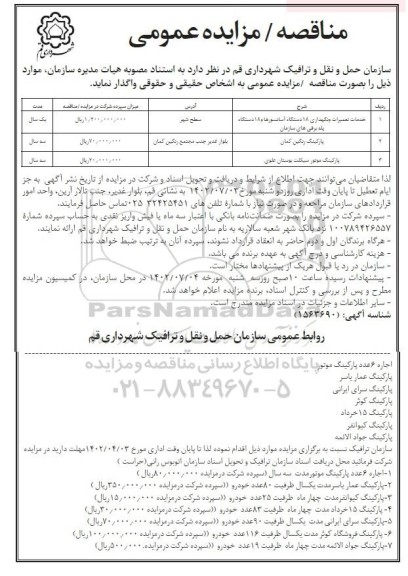 مناقصه / مزایده عمومی
سازمان حمل و نقل و ترافیک شهرداری قم در نظر دارد به استناد مصوبه هیات مدیره سازمان، موارد
ذیل را بصورت مناقصه /مزایده عمومی به اشخاص حقیقی و حقوقی واگذار نماید.
ردیف شرح آدرس میزان سپرده شرکت در مزایده / مناقصه مدت
۱ خدمات تعمیرات ونگهداری ۱۸ دستگاه آسانسورها و ۱۸ دستگاه پله برقی های سازمان سطح شهر ۱/۴۰۰/۰۰۰/۰۰۰ریال یک سال
۲ پارکینگ رنگین کمان بلوار غدیر جنب مجتمع رنگین کمان ۷۰/۰۰۰/۰۰۰ریال سه سال
۳ پارکینگ موتور سیکلت بوستان علوی ۲۰/۰۰۰/۰۰۰ریال سه سال
لذا متقاضیان می‌توانند جهت اطلاع از شرایط و دریافت و تحویل اسناد و شرکت در مزایده از تاریخ نشر آگهی به جز
ایام تعطیل تا پایان وقت اداری روز دو شنبه مورخ ۱۴۰۲/۰۷/۰۳ به نشانی قم، بلوار غدیر، جنب تالار آرین، واحد امور
قراردادهای سازمان مراجعه و در صورت نیاز با شماره تلفن های ۳۲۴۲۵۴۵۱ ۰۲۵ تماس حاصل فرمایند.
- سپرده شرکت در مزایده را بصورت ضمانت‌نامه بانکی با اعتبار سه ماه یا فیش واریز نقدی به حساب سپرده شمارۀ
۱۰۰۷۸۹۴۲۶۵۵۷ نزد بانک شهر شعبه سالاریه به نام سازمان حمل و نقل و ترافیک شهرداری قم ارائه نمایند.
- هرگاه برندگان اول و دوم حاضر به انعقاد قرارداد نشوند، سپرده آنان به ترتیب ضبط خواهد شد.
- هزینه کارشناسی و درج آگهی به عهده برنده می باشد.
- سازمان در رد یا قبول هریک از پیشنهادها مختار است.
- پیشنهادات رسیده ساعت ۱۰صبح روز سه شنبه مورخه ۱۴۰۲/۰۷/۰۴ در محل سازمان، در کمیسیون مزایده
مطرح و پس از بررسی و کنترل اسناد، برنده مزایده اعلام خواهد شد.
- سایر اطلاعات و جزئیات در اسناد مزایده مندرج است.
شناسه آگهی: (۱۵۶۳۶۹۰)
ParsNamadData
روابط عمومی سازمان حمل و نقل و ترافیک شهرداری قم
پایگاه اطلاع رسانی مناقصه و مزایده
۰۲۱-۸۸۳۴۹۶۷۰-۵
اجاره ۶عدد پارکینگ موتور
پارکینگ عمار یاسر
پارکینگ سرای ایرانی
پارکینگ کوثر
پارکینگ ۱۵خرداد
پارکینگ کیوانفر
پارکینگ جواد الائمه
سازمان ترافیک نسبت به برگزاری مزایده موارد ذیل اقدام نموده لذا تا پایان وقت اداری مورخ ۱۴۰۲/۰۴/۰۳مهلت دارید در مزایده
شرکت فرمائید محل دریافت اسناد سازمان ترافیک و تحویل اسناد سازمان اتوبوس رانی(حراست )
۱-اجاره ۶عدد پارکینگ موتورمدت سه سال (سپرده شرکت درمزایده ۸۰/۰۰۰/۰۰۰ریال )
۲-پارکینگ عمار یاسرمدت یکسال ظرفیت ۸۰عدد خودرو ((سپرده شرکت درمزایده ۳۵۰/۰۰۰/۰۰۰ریال )
۳-پارکینگ کیوانفرمدت چهار ماه ظرفیت ۲۵عدد خودرو ((سپرده شرکت درمزایده ۱۵/۰۰۰/۰۰۰ریال )
۴- پارکینگ ۱۵خرداد مدت چهار ماه ظرفیت ۸۳عدد خودرو ((سپرده شرکت درمزایده ۳۰/۰۰۰/۰۰۰ریال )
۵-پارکینگ سرای ایرانی مدت یکسال ظرفیت ۹۰عدد خودرو ((سپرده شرکت درمزایده ۷۰/۰۰۰/۰۰۰ریال )
۶- پارکینگ فروشگاه کوثر مدت یکسال ظرفیت ۱۱۶عدد خودرو ((سپرده شرکت درمزایده ۱۰۰/۰۰۰/۰۰۰ریال )
۷-پارکینگ جواد الائمه مدت چهار ماه ظرفیت ۱۹عدد خودرو ((سپرده شرکت درمزایده ۵۰/۰۰۰/۰۰۰ریال )